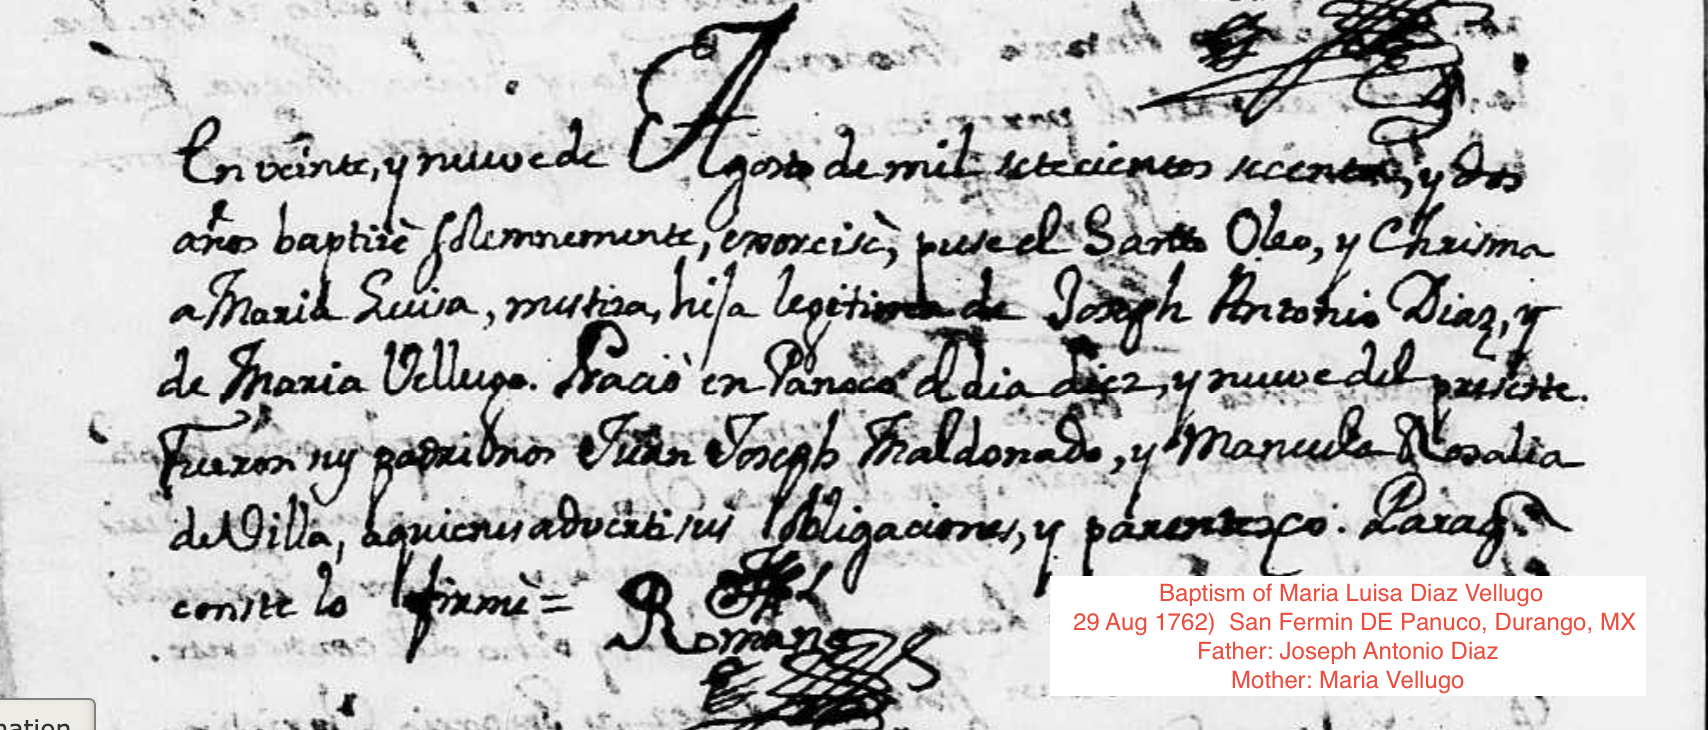 En veinte, y nueve de Agosto de mil setecientos secenta, y dos
años baptizè solemnemente, exorcisè, puse el Santo Oleo, y Chrisma
a Maria Luisa, mestiza, hija legitima de Joseph Antonio Diaz, y
de Maria Vellugo. Naciò en Panoco el dia diez, y nueve del presente.
Fueron sus padrinos Juan Joseph Maldonado, y Manuela Rosalia
de Villa, a quienes adverti sus obligaciones, y parentezco. Para q.e
conste lo firmè =
Romano
Baptism of Maria Luisa Diaz Vellugo
29 Aug 1762) San Fermin DE Panuco, Durango, MX
Father: Joseph Antonio Diaz
Mother: Maria Vellugo